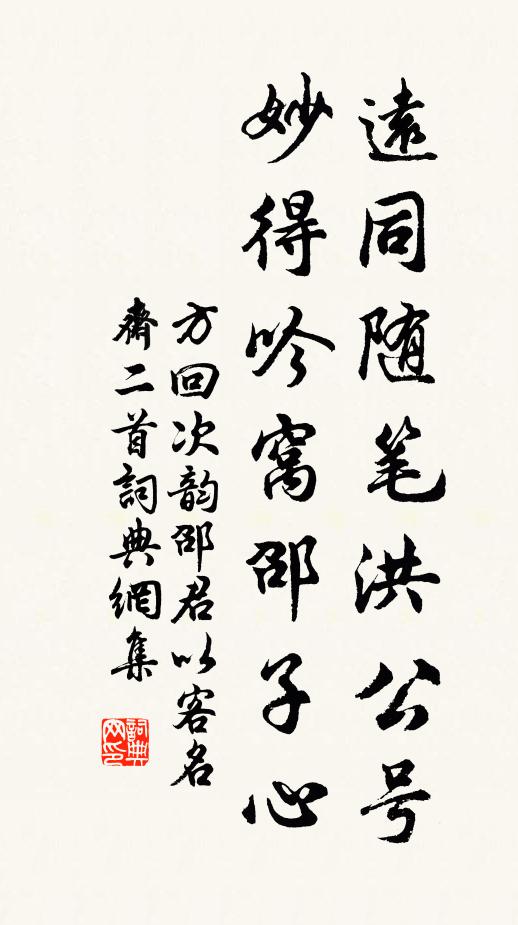 遠同随笔洪公号
妙得吟窩邵子心
方回次韵邵君以容名
齋二首詞典網集
詞典網印